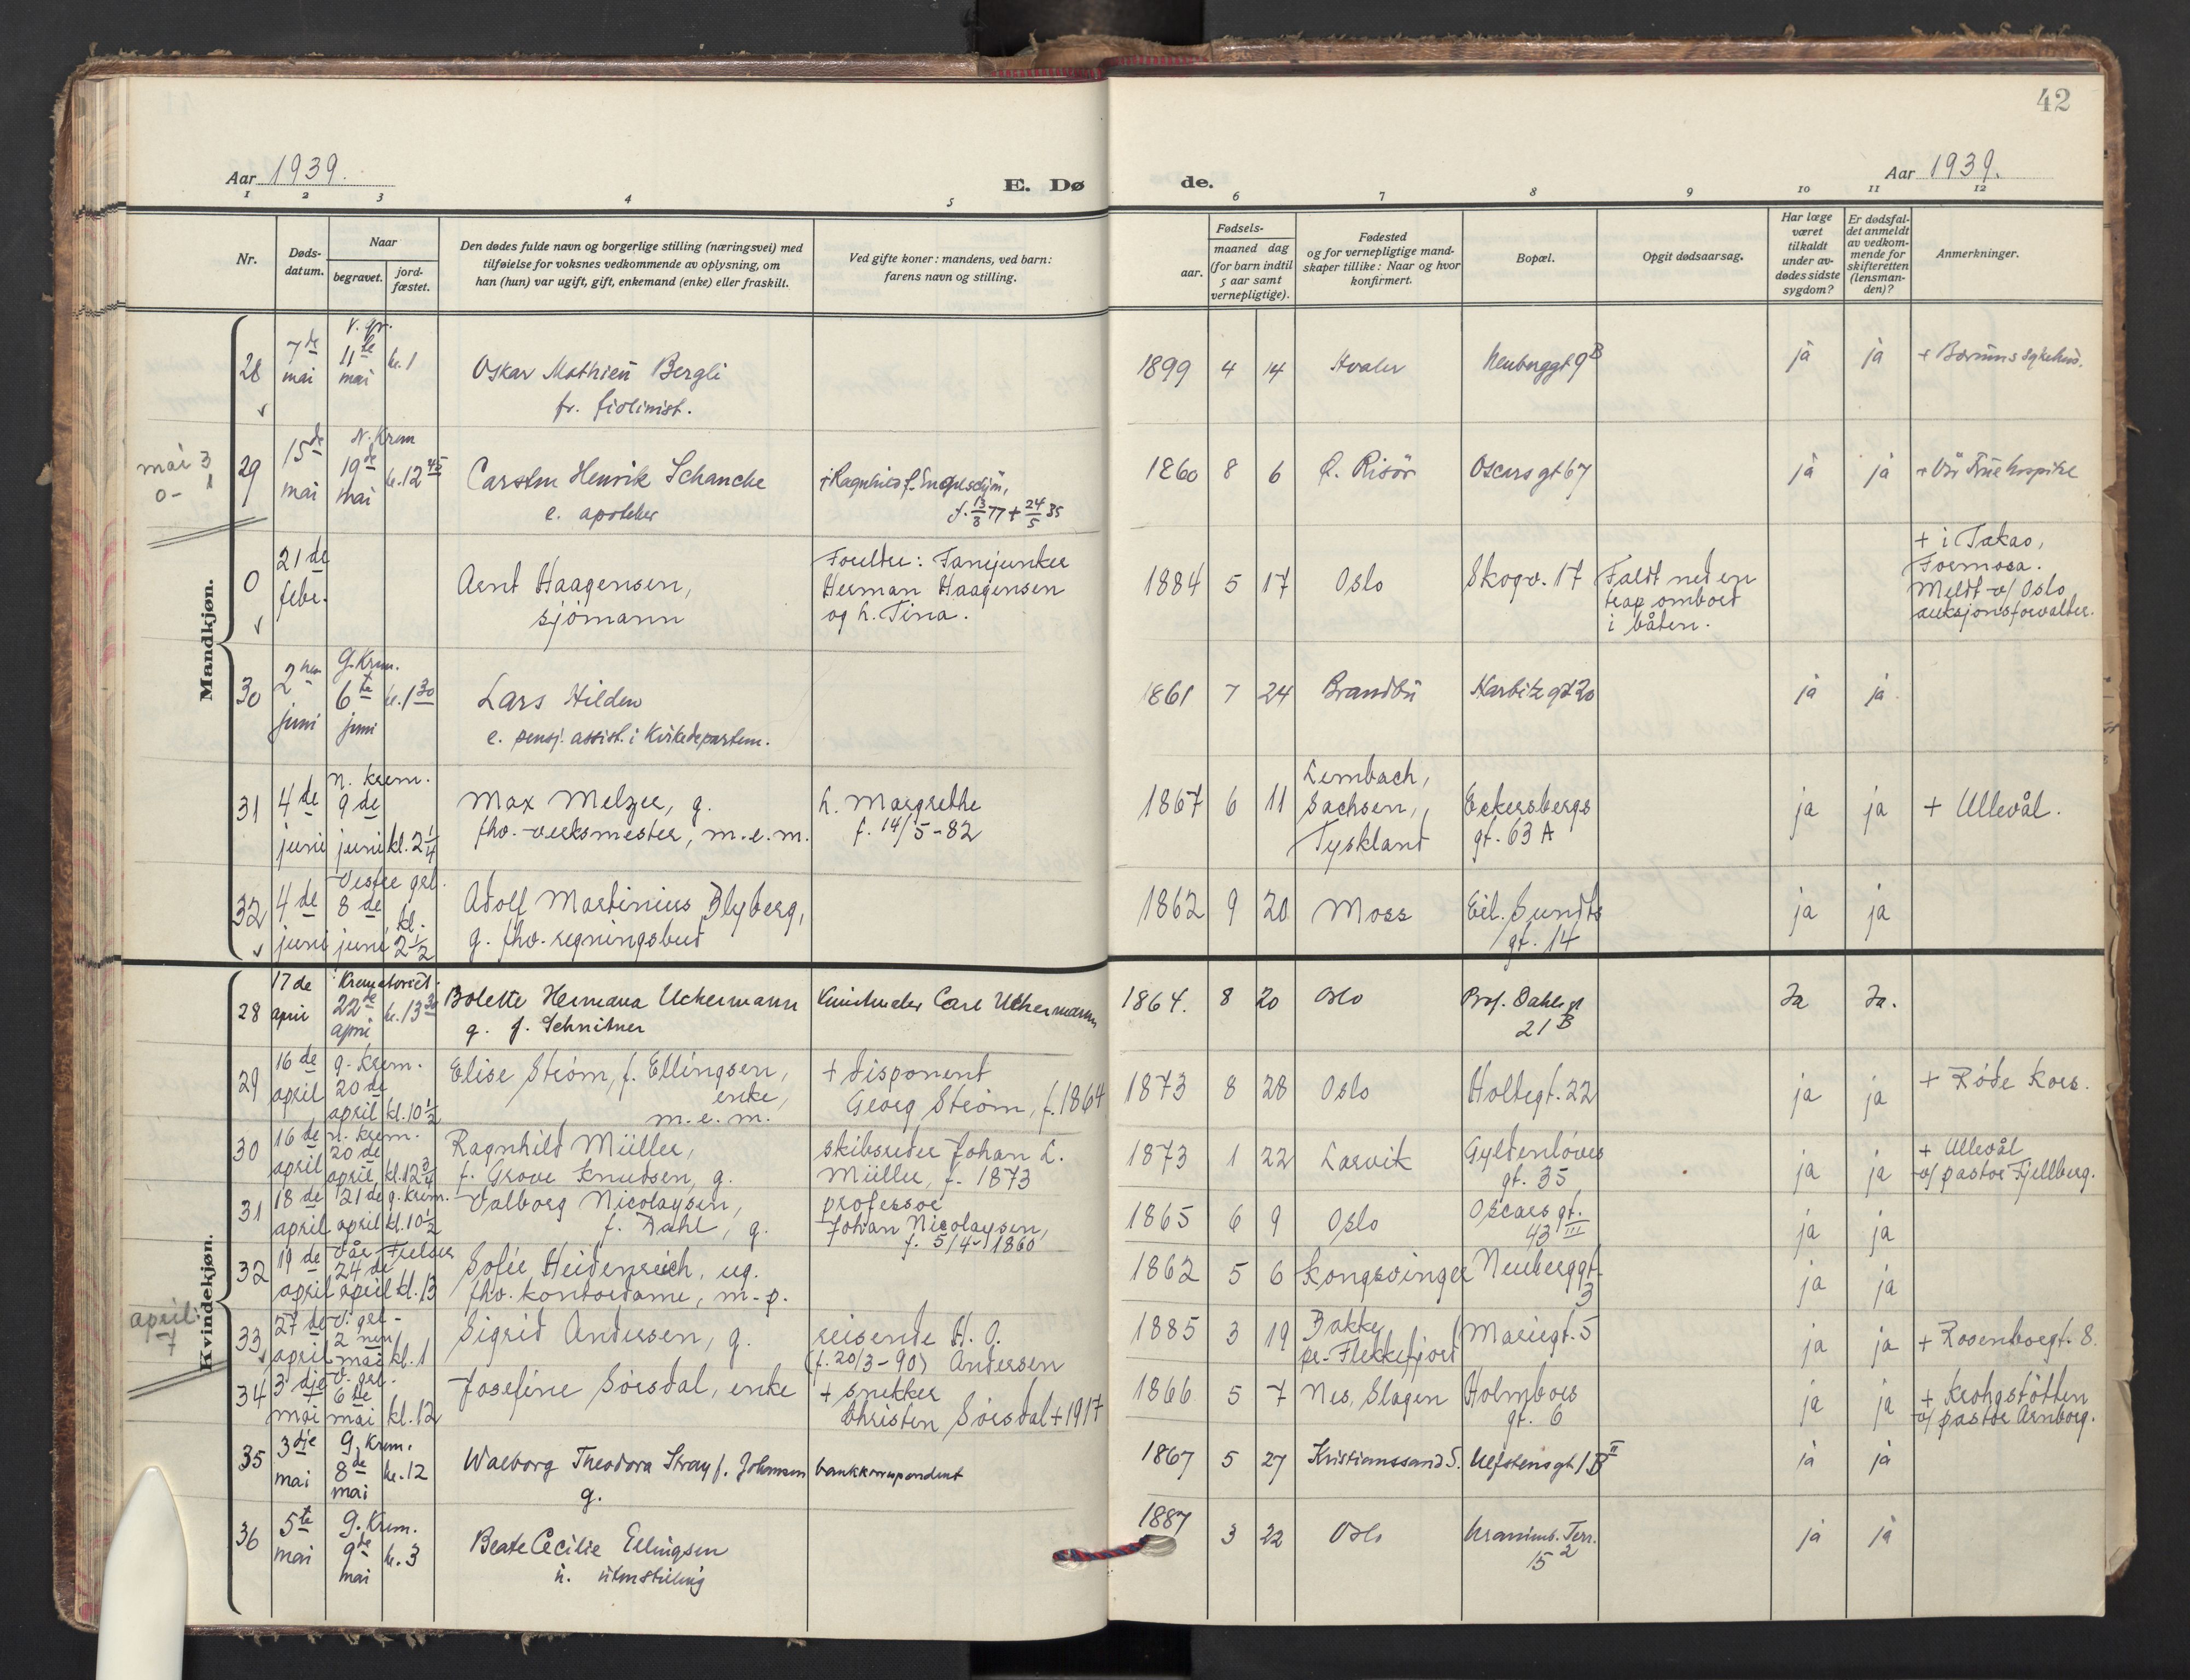 42
Aar 1939.
E. Dø
de.
Aar 1939.
1 2 3 4 5 6 7 8 9 10 11 12
Nr.
Døds-
datum.
Naar
begravet.
jord-
fæstet.
Den dødes fulde navn og borgerlige stilling (næringsvei) med
tilføielse for voksnes vedkommende av oplysning, om
han (hun) var ugift, gift, enkemand (enke) eller fraskilt.
Ved gifte koner: mandens, ved barn:
farens navn og stilling.
Fødsels-
aar.
maaned dag
(for barn indtil
5 aar samt
vernepligtige).
Fødested
og for vernepligtige mand-
skaper tillike: Naar og hvor
konfirmert.
Bopæl.
Opgit dødsaarsag.
Har læge
været
tilkaldt
under av-
dødes sidste
sygdom?
Er dødsfal-
det anmeldt
av vedkom-
mende for
skifteretten
(lensman-
den)?
Anmerkninger.
Mandkjøn.
28 7de mai v. gr. 11te mai kl. 1
Oskar Mathieu Bergli
fr. fiolinist.
1899 4 14 Hvaler Neuberggt 9B ja ja + Bærums sykehus.
mai 3
0- 1
29 15de mai N. Krem 19de mai kl. 12 45
Carsten Henrik Schanche
e. apoteker
+ Ragnhild f.
f. 13/8 77 + 24/5 35
1860 8 6 Ø. Risör Oscarsgt 67 ja ja + Vår Frue hospital
0 21de febr.
Arnt Haagensen,
sjömann
Foreldre: Fanejunker
Herman Haagensen
og h. Tina.
1884 5 17 Oslo Skogv. 17
Faldt ned en
trap ombord
i båten.
+ i Takao,
Formosa.
Meldt v/ Oslo
auksjonsforvalter.
30 2nen juni G. Krem. 6te juni kl. 1 30
Lars Hilden
e. pensj. assist. i Kirkedepartem.
1861 7 24 Brandbu Harbitzgt 20 ja ja
31 4de juni n. krem. 9de juni kl. 2 1/4
Max Melzer, g.
fhv. verksmester, m.e.m.
h. Margrethe
f. 14/5-82
1867 6 11
Lembach,
Sachsen,
Tyskland
Eckersbergs
gt. 63 A
ja ja + Ullevål.
32 4de juni Vestre grl. 8de juni kl. 2 1/2
Adolf Martinius Blyberg,
g. fhv. regningsbud
1862 9 20 Moss Eil. Sundts
gt. 14
ja ja
Kvindekjøn.
28 17de april Krematoriet. 22de april kl. 13 30
Bolette Hermana Uchermann
g. f. Schnitner
Kunstmaler Carl Uchermann
1864. 8 20 Oslo Prof. Dahlsgt
21 B
Ja Ja.
29 16de april g. krem. 20de april kl. 10 1/2
Elise Strøm, f. Ellingsen,
enke,
m.e.m.
+ disponent
Georg Strøm, f. 1864
1873 8 28 Oslo Holtegt. 22 ja ja + Røde Kors.
30 16de april n. krem. 20de april kl. 12 3/4
Ragnhild Müller,
f. Grove Knudsen, g.
skibsreder Johan L.
Müller, f. 1873
1873 1 22 Larvik Gyldenløves
gt. 35
ja ja + Ullevål
v/ pastor Fjellberg.
31 18de april 21de g. krem. april kl. 10 1/2
Valborg Nicolaysen,
f. Dahl, g.
professor
Johan Nicolaysen,
f. 5/4 1860
1865 6 9 Oslo Oscarsgt.
43 III
ja ja
32 19de april Vår Frelser 24de april kl. 13
Sofie Heidenreich, ug.
fhv. kontordame, m.p.
1862 5 6 Kongsvinger Neuberggt.
3
ja ja
april:
7
33 27de april V. grl. 2nen mai kl. 1
Sigrid Andersen, g.
reisende H. O.
(f. 20/3-90) Andersen
1885 3 19 Bakke
pr. Flekkefjord
Mariegt. 5 ja ja + Rosenborgt. 8.
34 3dje mai V. grl. 6te mai kl. 12
Josefine Sørsdal, enke
+ snekker
Christen Sørsdal + 1917
1866 5 7 Nes, Slagen Holmboes
gt. 6
ja ja + Krohgstøtten
v/ pastor Arnborg.
35 3dje mai G. Krem. 8de mai kl. 12
Walborg Theodora Stray f. Johansen
g.
bankkorrespondent
1867 5 27 Kristianssand S. Uelstensgt 1 B II ja ja
36 5te mai G. Krem. 9de mai kl. 3
Beate Cecilie Ellingsen
u. uten stilling
1887 3 22 Oslo Uranienb. Terr.
15 2
ja ja